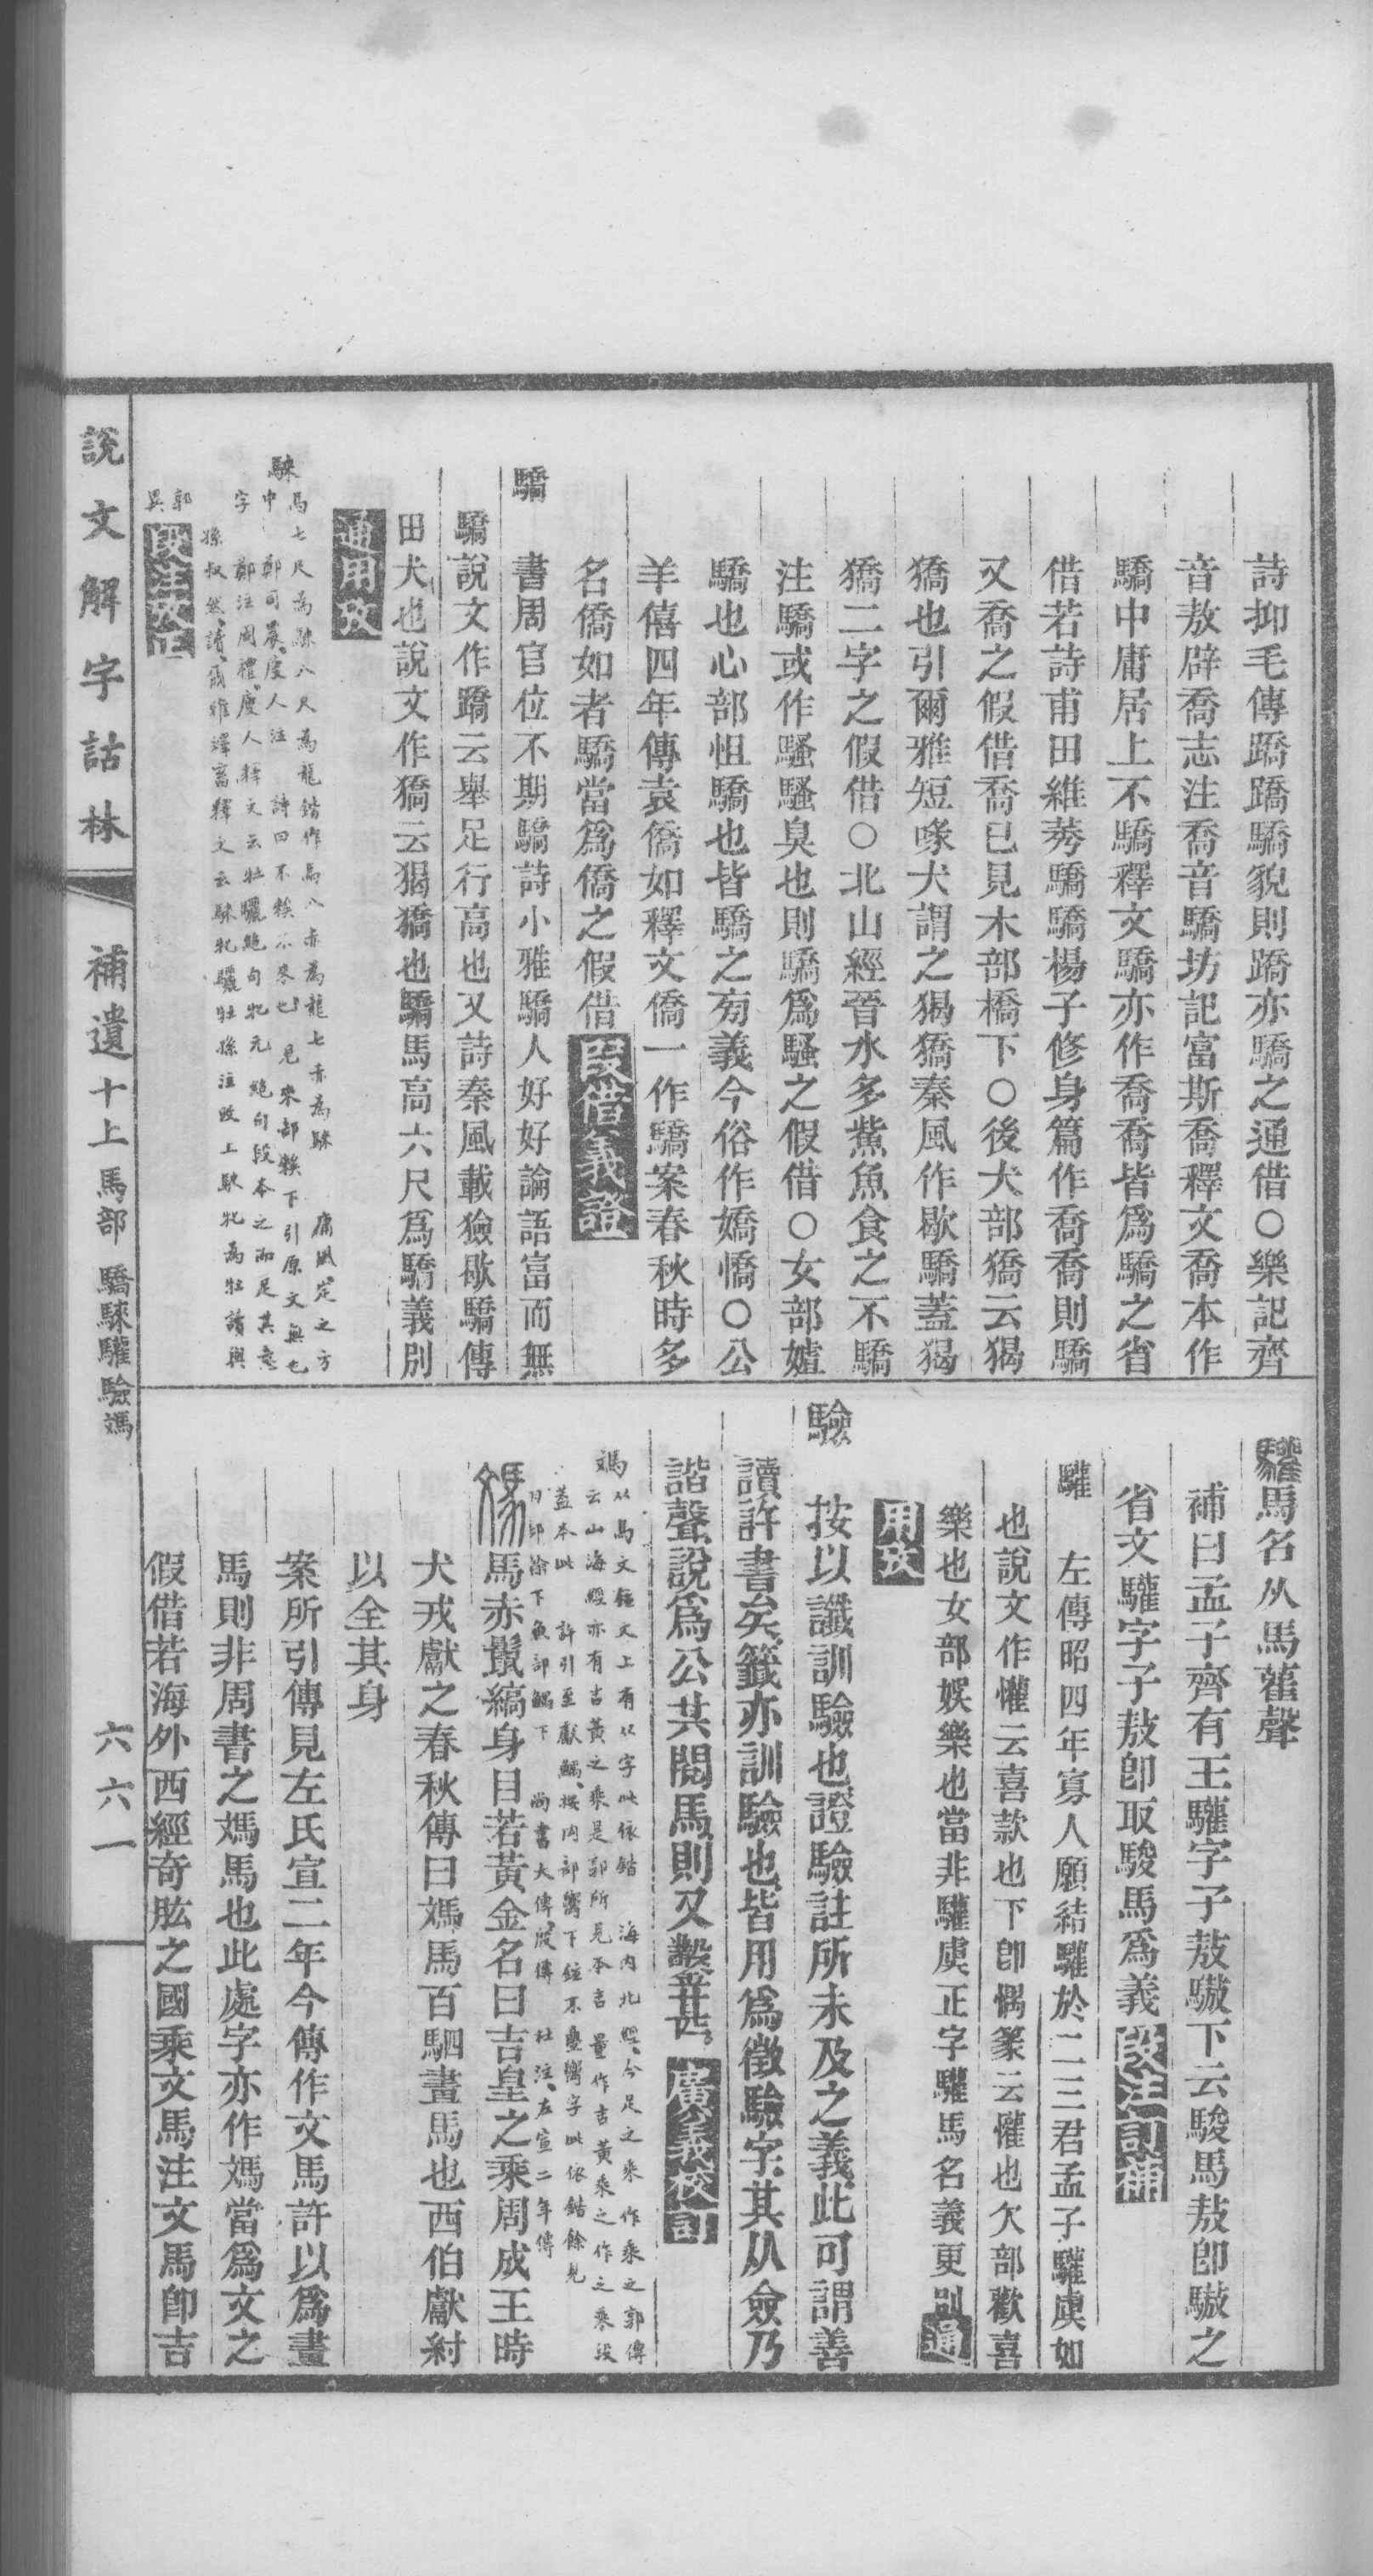 詩抑毛傳蹻蹻驕貌則蹻亦驕之通借○樂記齊
音敖辟喬志注喬音驕坊記富斯喬釋文喬本作
驕中庸居上不驕釋文驕亦作喬喬皆爲驕之省
借若詩甫田維莠驕驕楊子修身篇作喬喬則驕
又喬之假借喬已見木部橋下○後犬部獢云猲
獢也引爾雅短喙犬謂之猲獢秦風作歇驕蓋猲
獢二字之假借○北山經晉水多鮆魚食之不驕
注驕或作騷騷臭也則驕爲騷之假借○女部嫭
驕也心部怚驕也皆驕之㫄義今俗作嬌憍○公
羊僖四年傳袁僑如釋文僑一作驕案春秋時多
名僑如者驕當爲僑之假借段借義證
驕
書周官位不期驕詩小雅驕人好好論語富而無
驕說文作蹻云舉足行高也又詩秦風載獫歇驕傳
田犬也說文作獢云猲獢也驕馬高六尺爲驕義別
通用攷
騋馬七尺爲騋八尺爲龍鍇作馬八赤爲龍七赤爲騋　庸風定之方
中　鄭司農庾人注　詩曰不䅘不來也見來部䅘下引原文無也
字　鄭注周禮庾人釋文云牡驪絶句牝元　絶句段本之而足其意
孫叔然讀爾雅釋畜釋文云騋牝驪牡孫注改上騋牝爲牡讀與
郭
異段注攷正
驩馬名从馬雚聲
補曰孟子齊有王驩字子敖驐下云駿馬敖卽驐之
省文驩字子敖卽取駿馬爲義段注訂補
驩　左傳昭四年寡人願結驩於二三君孟子驩虞如
也說文作懽云喜款也下卽愕篆云懽也欠部歡喜
樂也女部娛樂也當非驩虞正字驩馬名義更別通
用攷
驗
按以讖訓驗也證驗註所未及之義此可謂善
讀許書矣籤亦訓驗也皆用爲徵驗字其从僉乃
諧聲說爲公其閱馬則又鑿甚廣義校訂
媽从馬文鉉文上有从字此依鍇　海內北經今足之乘　作乘之郭傳
云山海經亦有吉黃之乘是郭所見本吉量作吉黃乘之作之乘段
蓋本此　許引至獻　按內部　下鉉不疊　字此依鍇餘見
　　　下魚部鰅下　尚書大傳散傳　杜注左宣二年傳
馬赤鬛縞身目若黃金名曰吉皇之乘周成王時
犬戎獻之春秋傳曰媽馬百駟畫馬也西伯獻紂
以全其身
案所引傳見左氏宣二年今傳作文馬許以爲畫
馬則非周書之媽馬也此處字亦作媽當爲文之
假借若海外西經奇肱之國乘文馬注文馬卽吉
說文解字詁林　補遺十上　馬部　驕騋驩驗媽　六六一